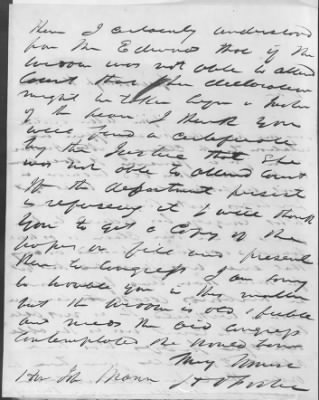 Now I certainly understood
from Mr Edwards that if the
woman was not able to attend
Court that her declaration
might be taken before a Justice
of the peace I think you
will find a certificate
by the Justice that she
was not able to attend Court
If the department persist
in refusing it I will thank
you to get a Copy of the
papers on file and present
them to Congress I am sorry
to trouble you in this matter
but the woman is old & feeble
and needs the aid Congress
contemplated she should have
Very
Hon Mann